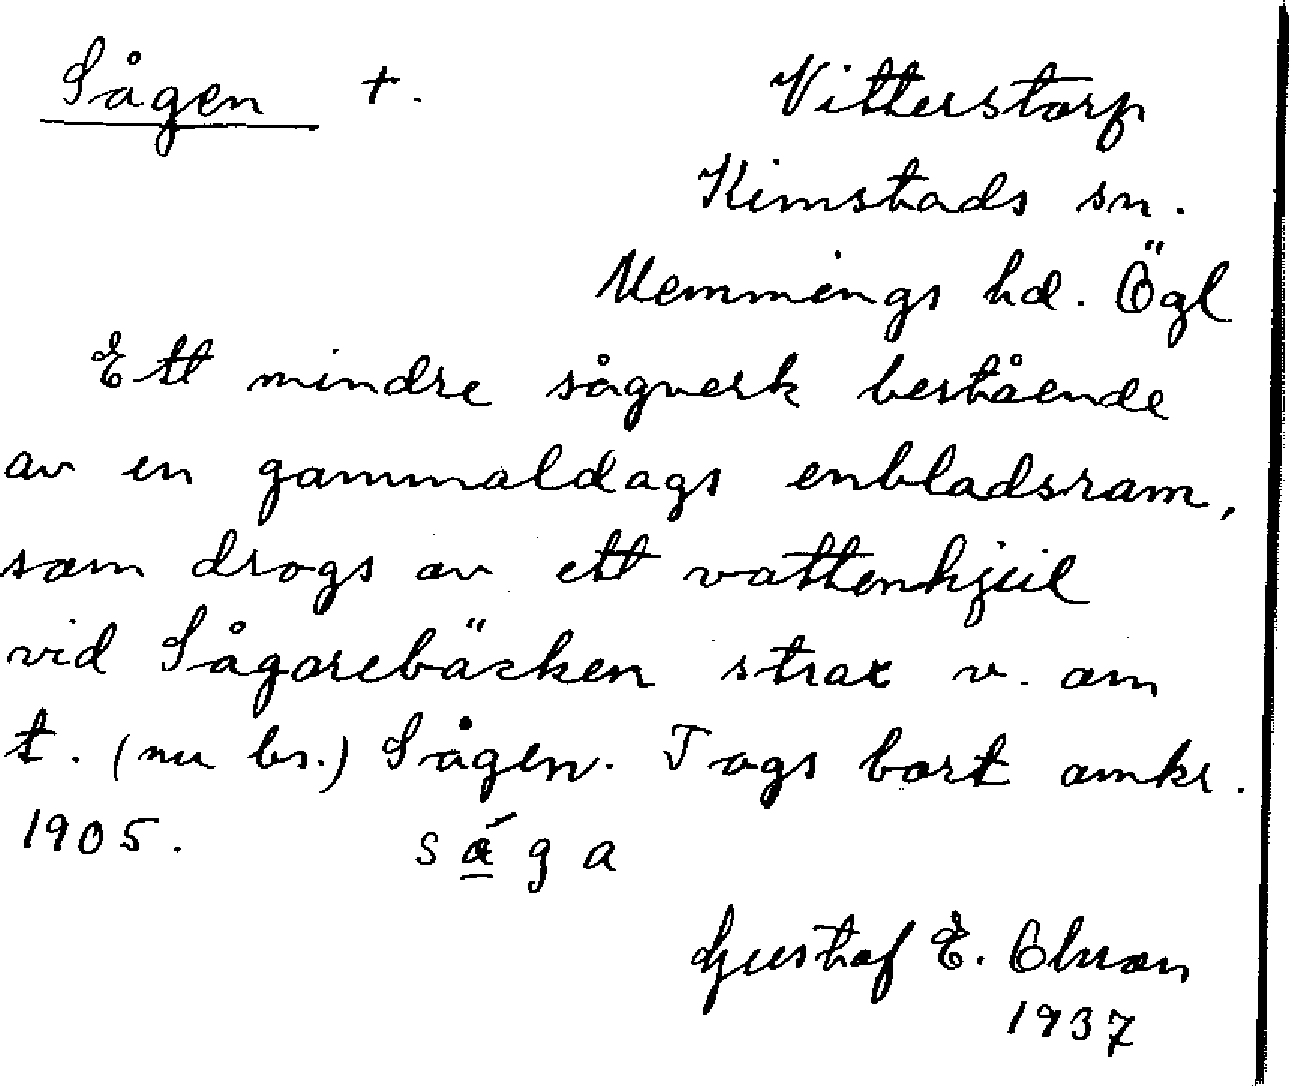 Sågen +.
Vitterstorp
Kimstads sn.
Memmings hd. Ögl
Ett mindre sågverk bestående
av en gammaldags enbladsram,
som drogs av ett vattenhjul
vid Sågarebäcken strax v. om
t. (nu bs.) Sågen. Togs bort omkr.
1905. såga
Gustaf E. Olsson
1937